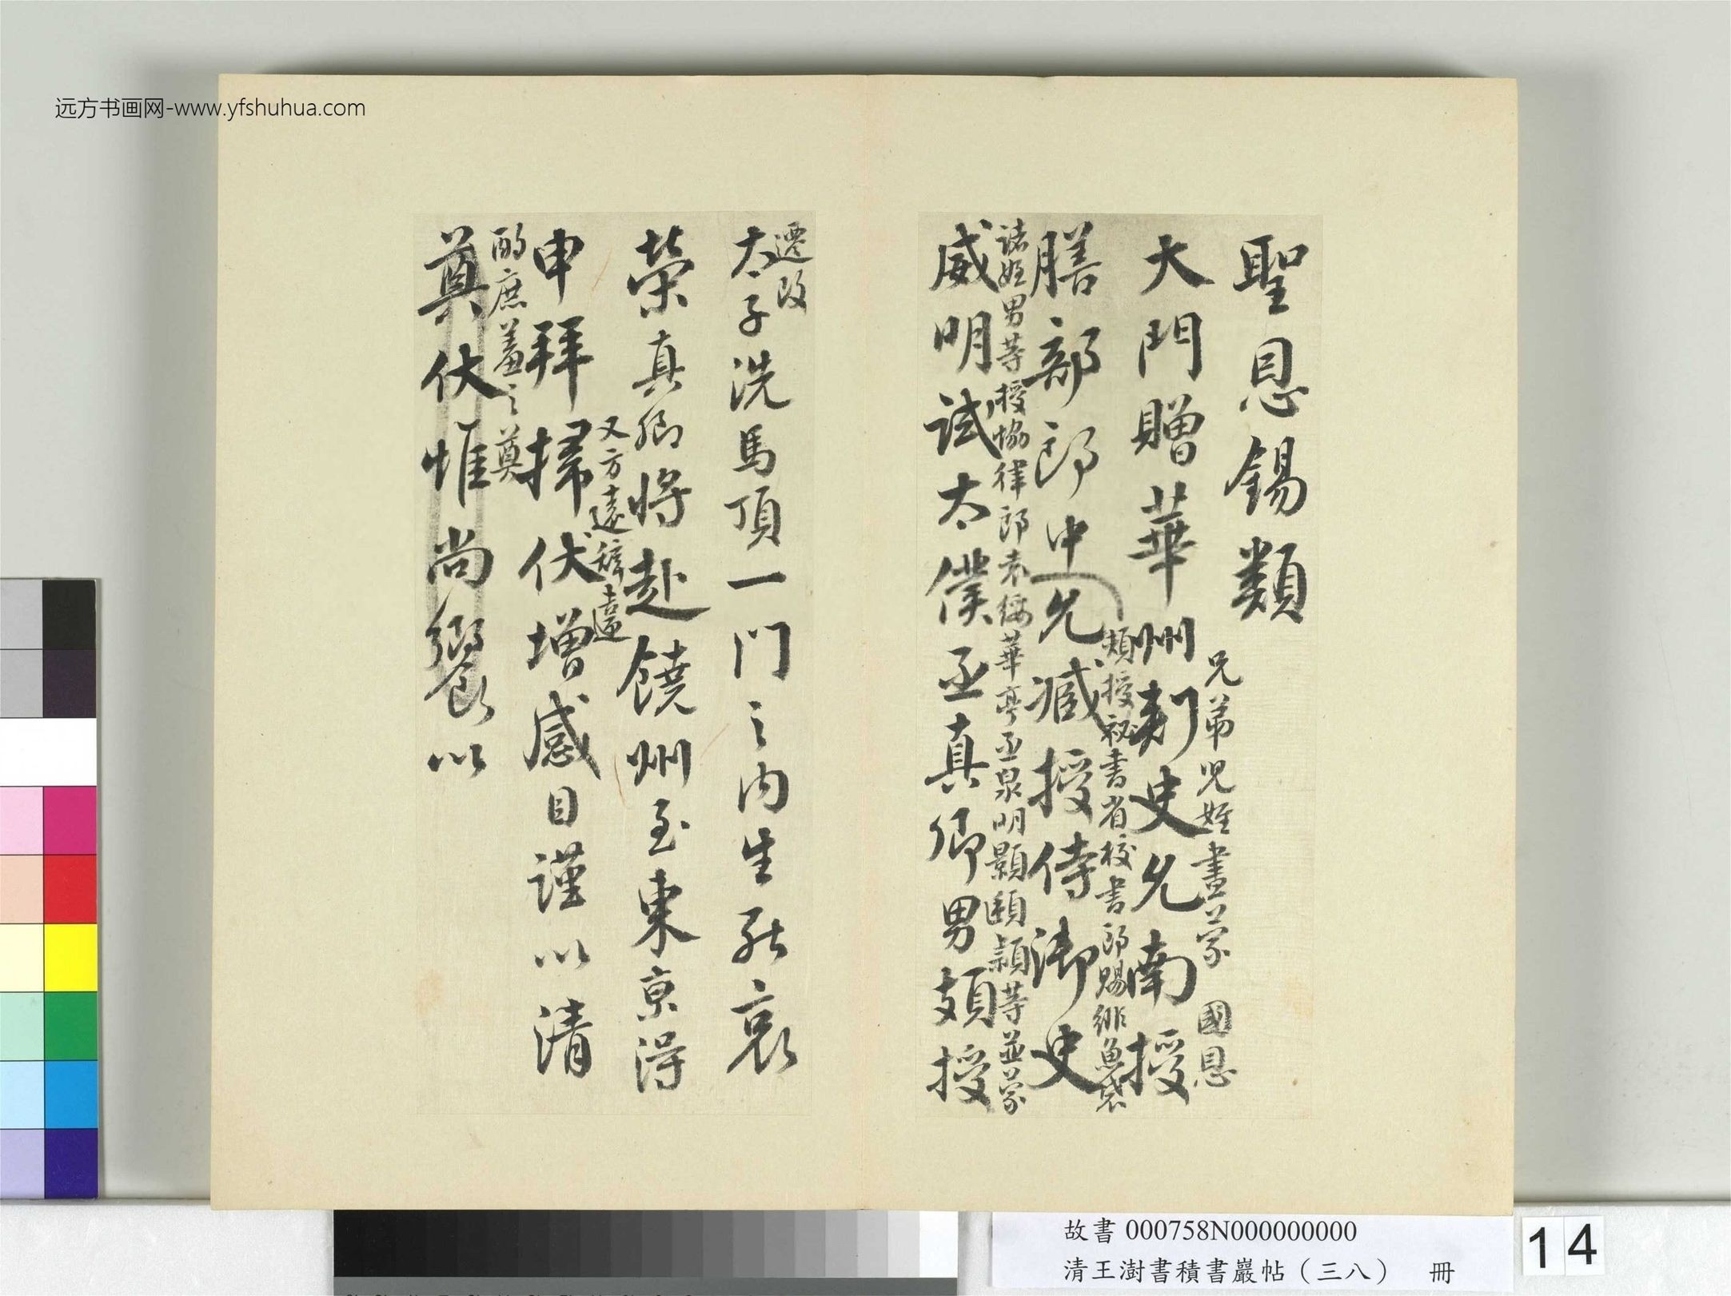 远方书画网-www.yfshuhua.com
聖恩錫類
兄弟児姪盡蒙 國恩
大門贈華州刺史允南授
頬授袐書省校書郎賜緋魚袋
膳部郎中允臧授侍御史
諸姪男等授協律郎泉明顥頤頴等並蒙
威明試太僕丞真卿男頗授
遷改
太子洗馬頂一門之内生死哀
榮真卿將赴饒州至東京得
又方遠辤違
申拜掃伏增感目謹以清
酌庶羞之奠
奠伏惟尚饗以
故書 000758N000000000
清王澍書積書巖帖（三八） 冊
14